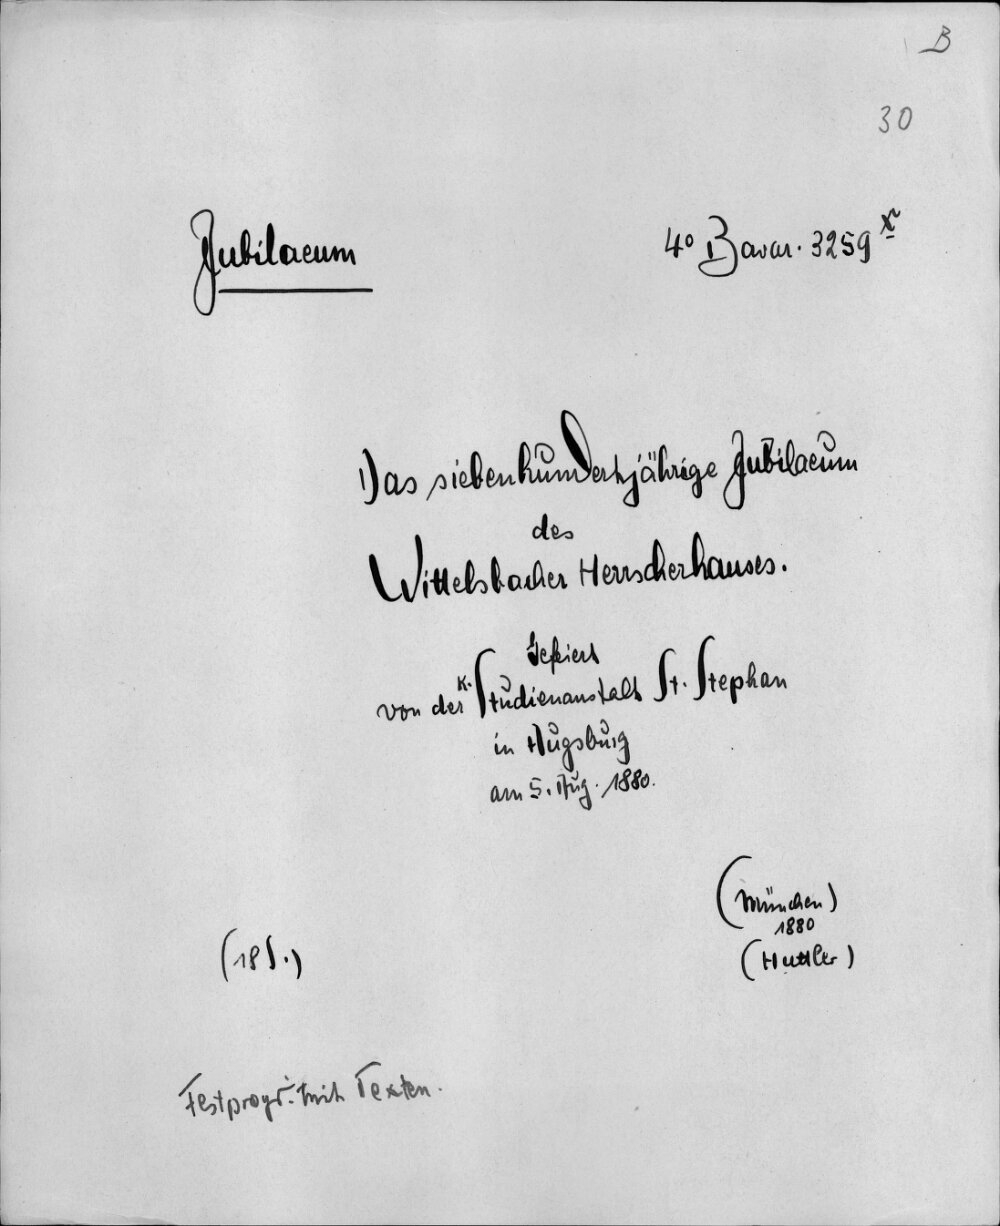 B
30
Jubilaeum
4° Bavar. 3259 x
Das siebenhundertjährige Jubilaeum
des
Wittelsbacher Herrscherhauses.
Gefeiert
von der K. Studienanstalt St. Stephan
in Augsburg
am 5. Aug. 1880.
(München)
1880
(18 S.)
(Huttler)
Festprogr. mit Texten.